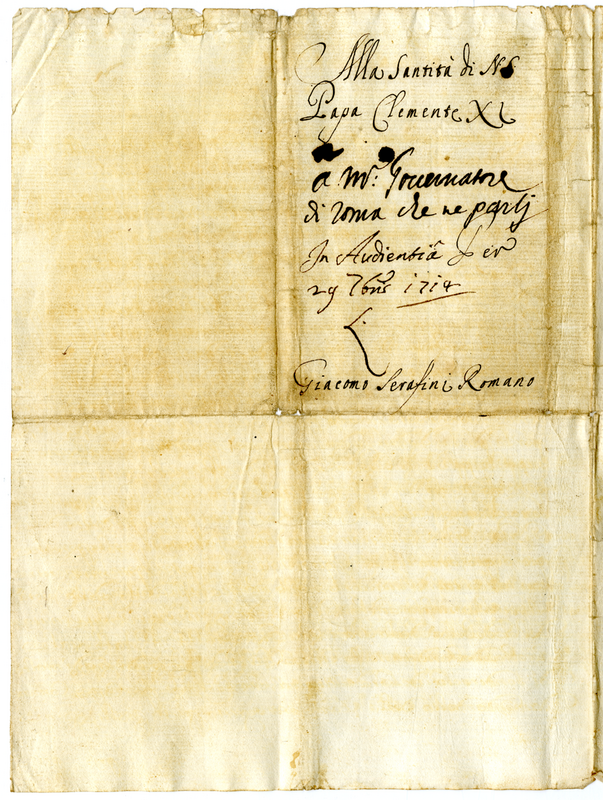 Alla Santità di N S
Papa Clemente XI
a Mr. Governatore
di Roma che ne parlj
In Audientia
29 7bris 1714
Giacomo Serafini Romano